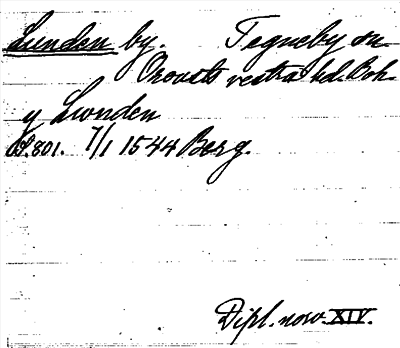 Lunden by. Tegneby sn.
Orousts vestra hd. Boh.
y Lwnden
s. 801. 7/1 1544 Berg.
Dipl. norv. XIV.